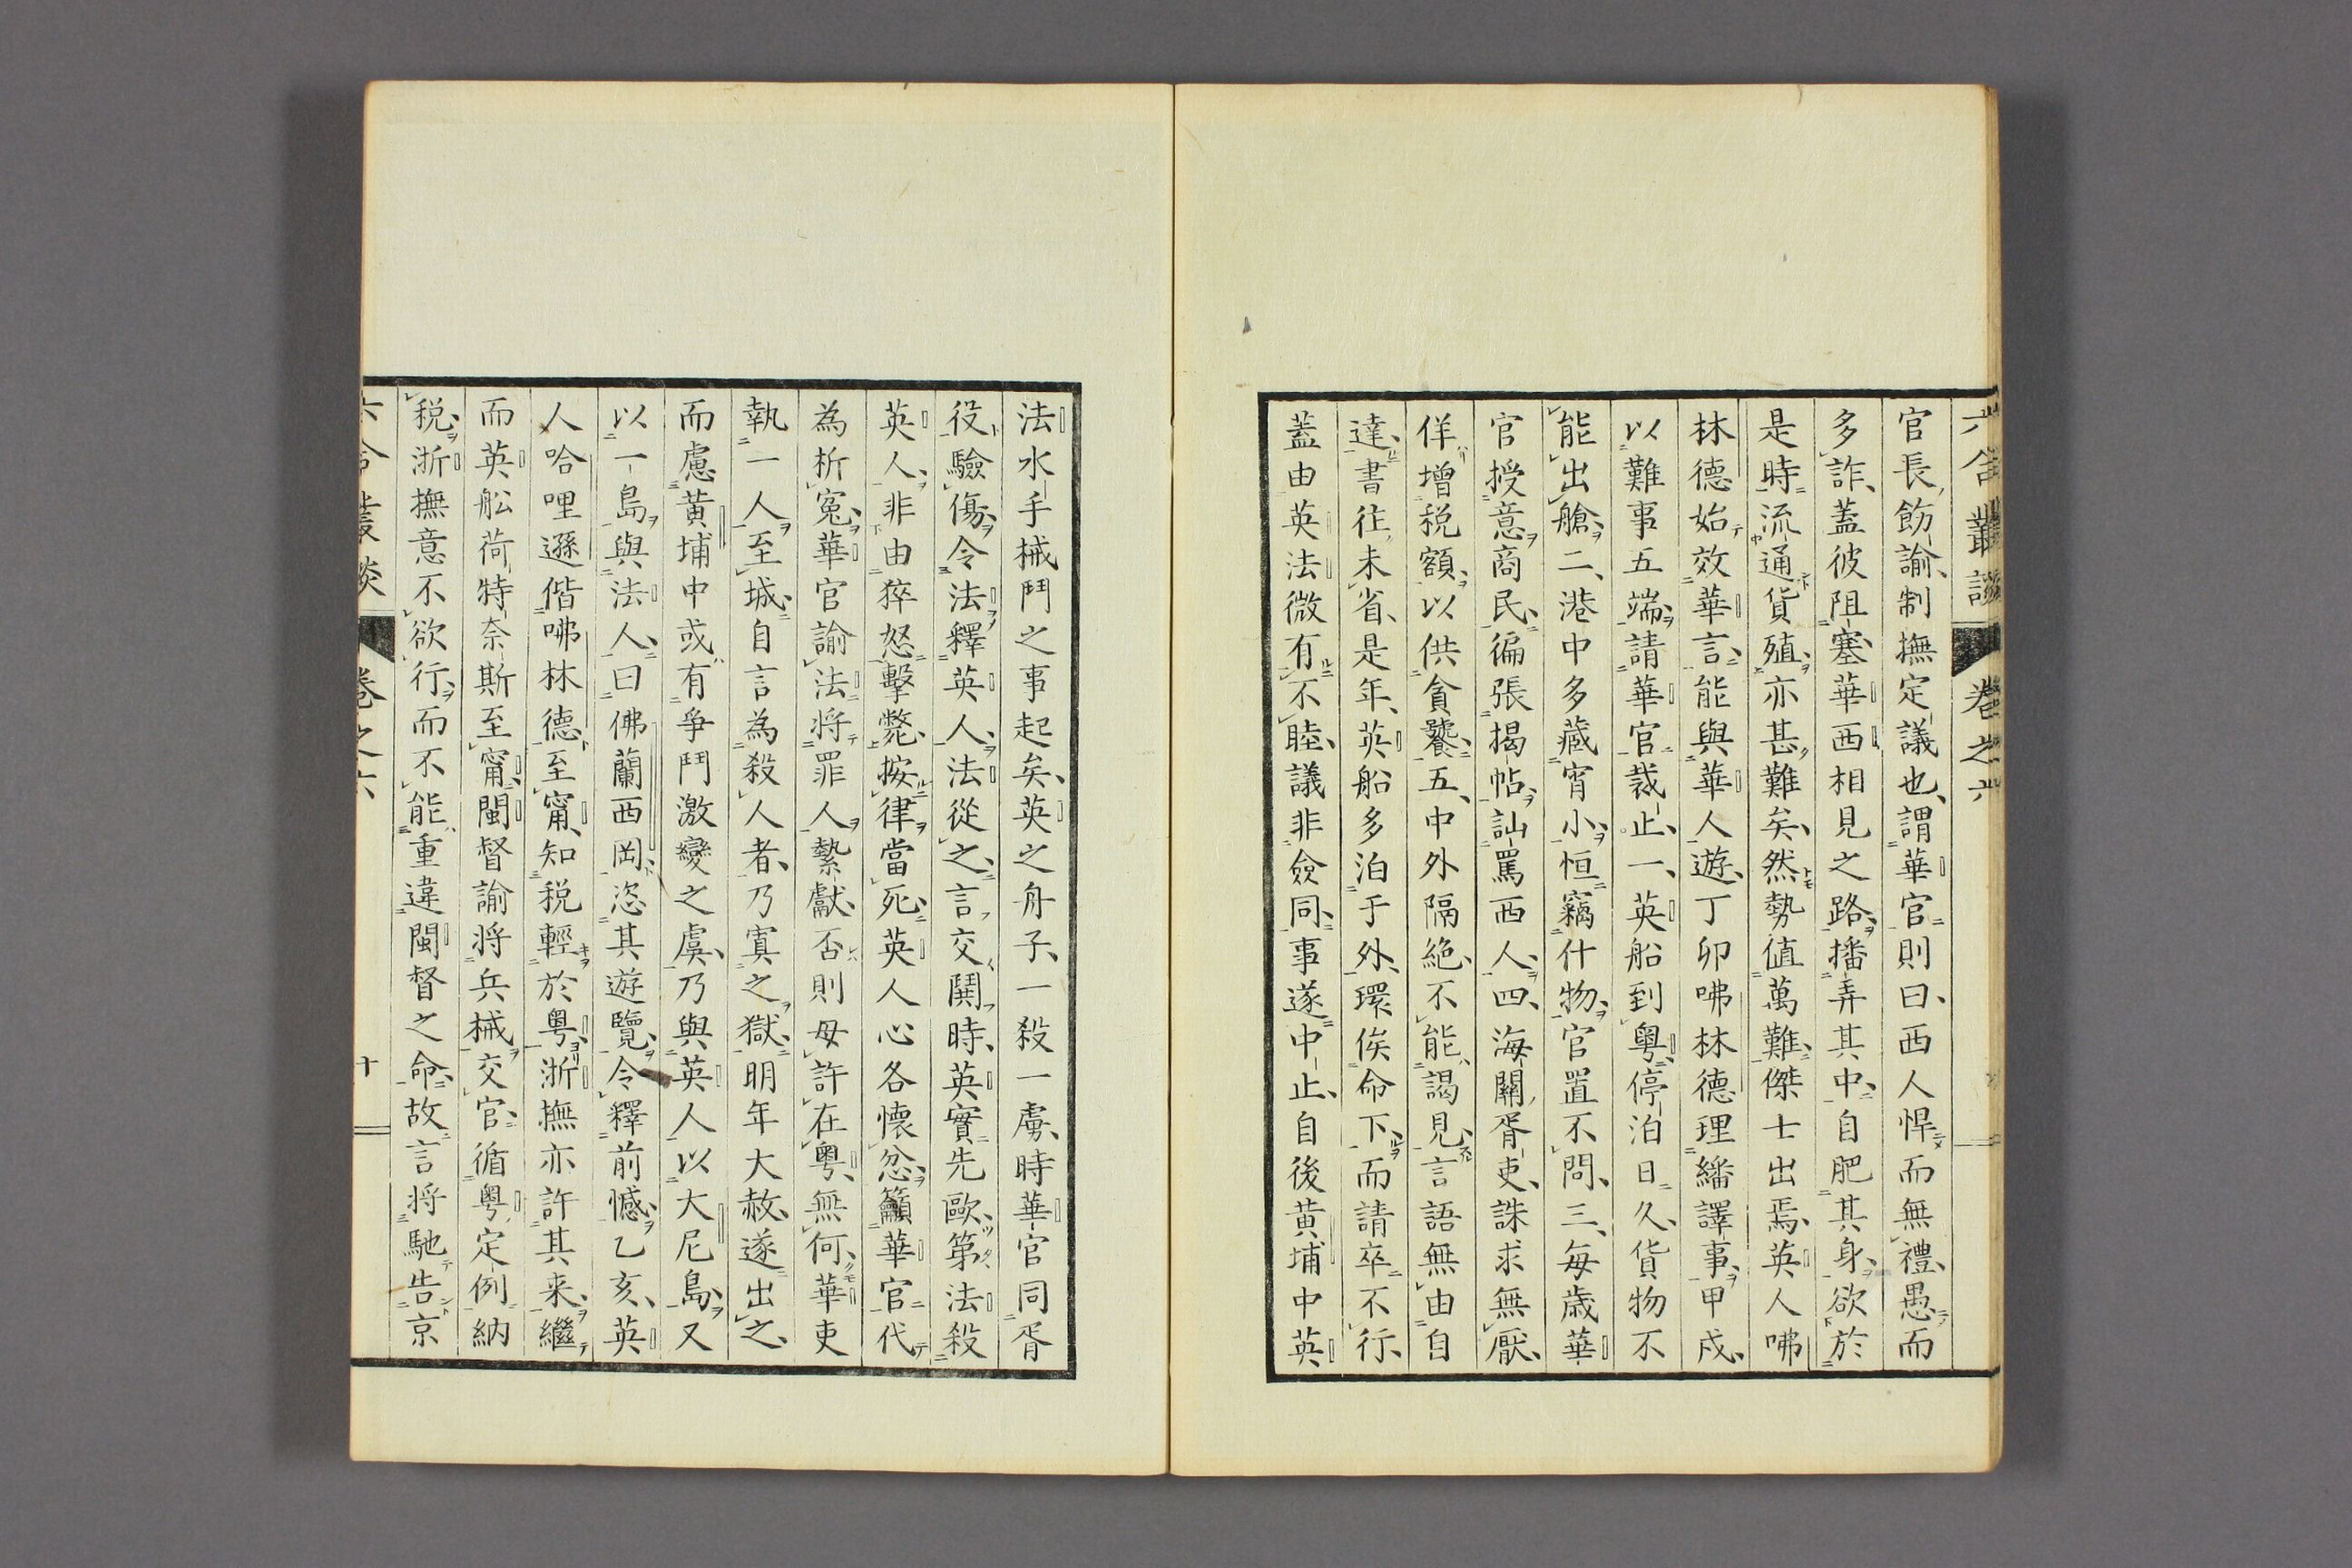 六合叢談 卷之六
官長飭諭、制撫定議也、謂華官則曰、西人悍而無禮、愚而
多詐、蓋彼阻塞華西相見之路、播弄其中、自肥其身、欲於
是時流通貨殖、亦甚難矣、然勢値萬難、傑士出焉、英人咈
林德始效華言、能與華人遊、丁卯咈林德理繙譯事、甲戍、
以難事五端、請華官裁止、一、英船到粵、停泊日久、貨物不
能出艙、二、港中多藏宵小、恒竊什物、官置不問、三、每歳華
官授意商民、徧張揭帖、訕罵西人、四、海關胥吏、誅求無厭、
佯增税額、以供貪饕、五、中外隔絶、不能謁見、言語無由自
達、書往未省、是年、英船多泊于外、環俟命下、而請卒不行、
蓋由英法微有不睦、議非僉同、事遂中止、自後黃埔中英
法水手械鬥之事起矣、英之舟子、一殺一虜、時華官同胥
役驗傷、令法釋英人、法從之、言交鬩時、英實先歐、第法殺
英人、非由猝怒擊斃、按律當死、英人心各懷忿、籲華官代
為析冤、華官諭法將罪人縶獻、否則毋許在粵、無何、華吏
執一人至城、自言為殺人者、乃寘之獄、明年大赦、遂出之、
而慮黃埔中或有爭鬥激變之虞、乃與英人以大尼島、又
以一島與法人、曰佛蘭西岡、恣其遊覽、令釋前憾、乙亥、英
人哈哩遜偕咈林德、至甯、知税輕於粵、浙撫亦許其来、繼
而英舩荷特奈斯至甯、閩督諭將兵械交官、循粵定例納
税、浙撫意不欲行、而不能重違閩督之命、故言將馳告京
六合叢談 卷之六 十